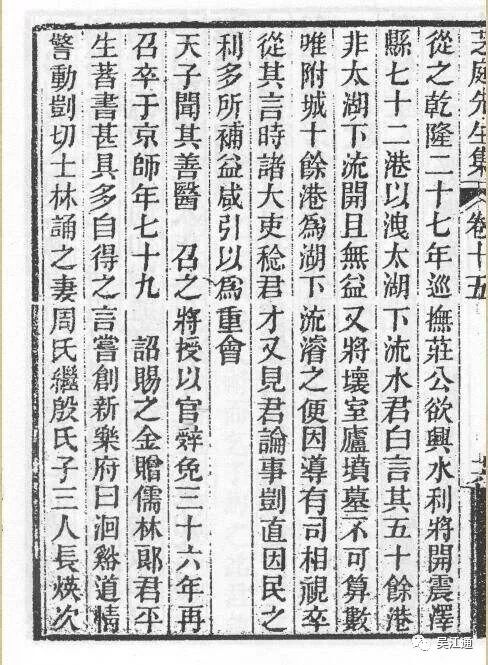 芝庭先生集 卷十五
從之乾隆二十七年巡撫莊公欲興水利將開震澤
縣七十二港以洩太湖下流水君白言其五十餘港
非太湖下流開且無益又將壞室廬墳墓不可算數
唯附城十餘港為湖下流濬之便因導有司相視卒
從其言時諸大吏稔君才又見君論事剴直因民之
利多所補益咸引以為重會
天子聞其善醫 召之將授以官辭免三十六年再
召卒于京師年七十九 詔賜之金贈儒林郎君平
生著書甚具多自得之言嘗創新樂府曰洄谿道情
警動剴切士林誦之妻周氏繼殷氏子三人長燨次
吴江通